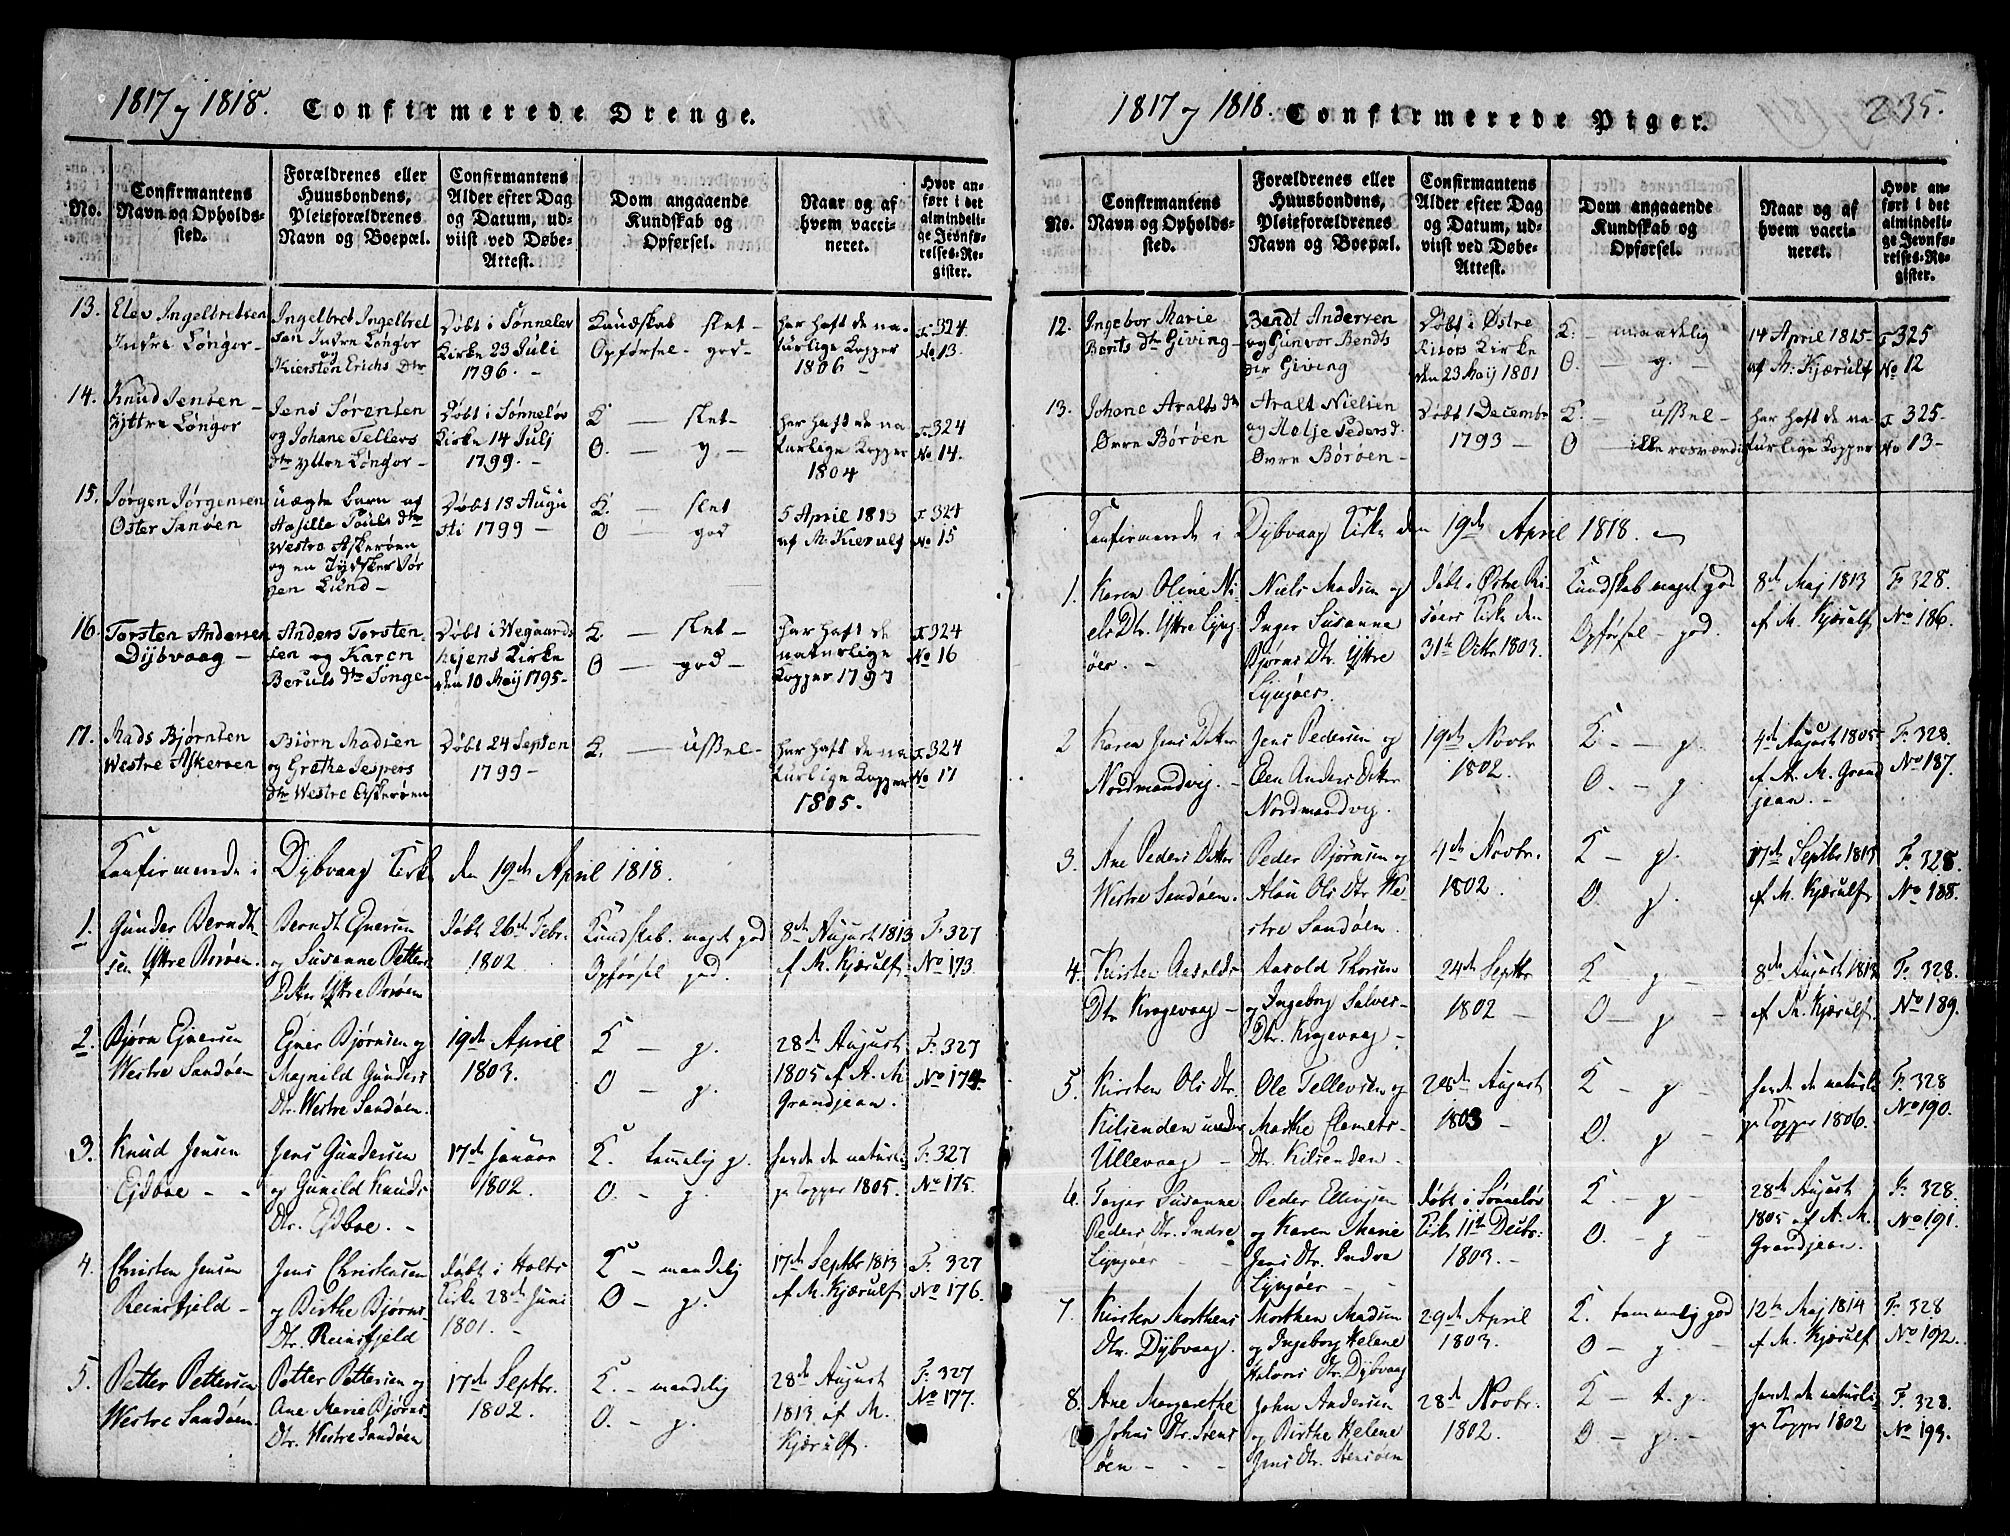 1817 & 1818. Confirmerede Drenge.
No.
Confirmantens
Navn og Opholds-
sted.
Forældrenes eller
Huusbondens,
Pleieforældrenes
Navn og Boepæl.
Confirmantens
Alder efter Dag
og Datum, ud-
viist ved Døbe-
Attest.
Dom angaaende
Kundskab og
Opførsel.
Naar og af
hvem vacci-
neret.
Hvor an-
ført i det
almindeli-
ge Jevnfø-
relses-Re-
gister.
13. Elev Ingelbretsen
Indre Løngør -
Ingelbret Ingelbret
sen Indre Løngør
og
Kiersten Erichs Dtr
Døbt i Sønnelev
Kirke 23 Juli
1796. -
Kundskab slet -
Opførsel - god -
har haft de na-
turlige Kopper
1806 -
F 324
No 13.
14. Knud Jensen -
Yttre Løngør
Jens Sørensen
og Johane Tellevs
dtr Yttre Løngør -
Døbt i Sønneløv
Kirke 14 Julj
1799. -
K - slet -
O. - g. -
har haft de na
turlige Kopper
1804
F 324
No 14.
15. Jørgen Jørgensen
Oster Sanøen
uægte barn af
Aasille Pouls dtr
Westre Askerøen
og en Tydsker Jør
gen Lund -
Døbt 18 Augu
sti 1799 -
K. - slet
O - god
5 April 1813
af M. Kierulf
F 324
No 15
16. Torsten Andersen
Dijbvaag -
Anders Torsten-
sen og Karen
Beruls dtr Songe
Døbt i Wegaards
hejens Kirke
den 10 Maij 1795 -
K. - slet -
O - god -
har haft de
naturlige
Kopper 1797
F 324
No 16
17. Mads Bjørnsen
Westre Askerøen
Biørn Madsen
og Grethe Jespers
dtr Westre Askerøen
Døbt 24 Septem
1799 -
K. - ussel -
har haft de na
turlige Kopper
1805.
F 324
No 17
Konfirmerede i Dybvaag Kirke den 19de April 1818.
1. Gunder Berndt-
sen Yttre Borøen.
Berndt Ejnersen
og Susanne Petters
Datter Yttre Borøen
Døbt 26de Febr.
1802.
Kundskab. meget god
Opførsel god.
8de August 1813
af M. Kjærulf
F. 327
No 173.
2. Bjørn Ejnersen
Westre Sandøen
Ejner Bjørnsen og
Magnild Gunders
Dtr. Westre Sandøen.
19de April
1803.
K - g.
O - g.
28de August
1805 af A. M
Grandjean.
F. 327
No 174
3. Knud Jensen
Ejdboe - -
Jens Gundersen
og Gunild Knuds
Dtr. Ejdboe. -
17de Januar
1802.
K. temmelig g.
O. - g.
havde de naturli
ge Copper 1805.
F. 327
No 175.
4. Christen Jensen
Reinsfjeld -
Jens Christensen
og Birthe Bjørns-
Dtr. Reinsfjeld
Døbt i Holts
Kirke 28de Juni
1801. -
K - maadelig
O - g.
17de Septbr 1813
af M. Kjærulf
F. 327
No 176.
5. Petter Pettersen
Westre Sandøen.
Petter Pettersen og
Ane Marie Bjørns
Dtr. Westre Sandøen
17de Septbr.
1802.
K. - maadelig
O. - g.
28de August
1813 af M.
Kjærulf.
F. 327
No 177.
1817 & 1818. Confirmerede Piger. 235.
No.
Confirmantens
Navn og Opholds-
sted.
Forældrenes eller
Huusbondens,
Pleieforældrenes
Navn og Boepæl.
Confirmantens
Alder efter Dag
og Datum, ud-
viist ved Døbe-
Attest.
Dom angaaende
Kundskab og
Opførsel.
Naar og af
hvem vacci-
neret.
Hvor an-
ført i det
almindeli-
ge Jevnfø-
relses-Re-
gister.
12. Ingebor Marie
Bents dtr Giving -
Bendt Andersen
og Gunvor Bendts
dtr Giving
Døbt i Østre
Risørs Kirke
den 23 Maij 1801
K. - maadelig
O. - g. -
14 April 1815 -
af M. Kjærulf
F 325
No 12
13. Johane Aralts dtr
Øvre Børøen
Aralt Nielsen
og Aalje Peders d.
Øvre Børøen -
Døbt 1 Decembr
1793 -
K. - ussel -
O - ikke rosværdig
har haft de na-
turlige Kopper
F 325 -
No 13 -
Konfirmerede i Dybvaag Kirke den 19de April 1818. -
1. Karen Oline Ni
els Dtr. Yttre Lyng
øer. -
Niels Madsen og
Inger Susanne
Bjørns Dtr. Yttre
Lyngøer.
Døbt i Østre Ri
søers Kirke den
31te Octbr 1803.
Kundskab meget god
Opførsel - god.
8de Maj 1813
af M. Kjærulf
F. 328.
No 186.
2 Karen Jens Datter
Nordmandvig. -
Jens Pedersen og
Elen Anders Datter
Nordmandvig.
19de Novbr
1802.
K - - g.
O. - g.
4de August 1805
af A. M. Grand
jean. -
F. 328.
No 187.
3. Ane Peders Datter
Westre Sandøen.
Peder Bjørnsen og
Alou Ols Dtr. We-
stre Sandøen.
4de Novbr.
1802.
K - g.
O. - g.
17de Septbr 1815
af M. Kjærulf
F. 328.
No 188.
4. Kirsten Aasolds
Dtr. Krogevaag -
Aasold Thorsen
og Ingeborg Salves-
Dtr. Krogevaag -
24de Septbr
1802 -
K - g -
O - g -
8de August 1813
af M. Kjærulf.
F. 328.
No 189.
5. Kirsten Ols Dtr.
Kilsenden under
Ullevaag -
Ole Tellevsen og
Marthe Clemets-
Dtr. Kilsenden -
28de August
1803 -
K - g -
O. g -
havde de naturli
ge Copper 1806.
F. 328
No 190.
6. Torger Susanne
Peders Dtr. Indre
Lyngøer -
Peder Ellingsen
og Karen Marie
Jens Dtr. Indre
Lyngøer -
Døbt i Sønneløv
Kirke 11te Decbr.
1803. -
K. - g -
O. - g -
28de August
1805 af A. M.
Grandjean.
F. 328.
No 191.
7. Kirsten Morthens
Dtr. Dybvaag.
Morthen Madsen
og Ingeborg Helene
Halvors Dtr. Dybvaag
29de April
1803.
K. temmelig god
O - g. -
12te Maj 1814
af M. Kjærulf
F. 328
No 192.
8. Ane Margarethe
Johns Dtr. Stens
øen - - -
John Andersen
og Birthe Helene
Jens Dtr. Stensøen
28de Novbr.
1802.
K - t. g.
O - g. -
havde de naturli
ge Copper 1802
F. 328.
No 193.